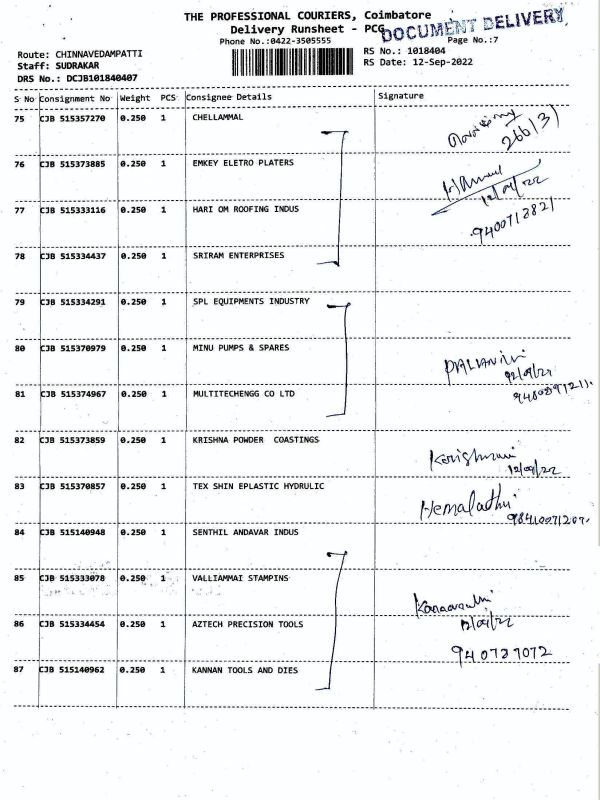 THE PROFESSIONAL COURIERS, Coimbatore
Delivery Runsheet - PCG
DOCUMENT DELIVERY
Phone No.:0422-3505555
Page No.:7
Route: CHINNAVEDAMPATTI
RS No.: 1018404
Staff: SUDRAKAR
RS Date: 12-Sep-2022
DRS No.: DCJB101840407
S No Consignment No Weight PCS Consignee Details Signature
75 CJB 515357270 0.250 1 CHELLAMMAL
266/3)
76 CJB 515373885 0.250 1 EMKEY ELETRO PLATERS
12/09/22
77 CJB 515333116 0.250 1 HARI OM ROOFING INDUS
9400713821
78 CJB 515334437 0.250 1 SRIRAM ENTERPRISES
79 CJB 515334291 0.250 1 SPL EQUIPMENTS INDUSTRY
80 CJB 515370979 0.250 1 MINU PUMPS & SPARES
81 CJB 515374967 0.250 1 MULTITECHENGG CO LTD
82 CJB 515373859 0.250 1 KRISHNA POWDER COASTINGS
12/09/22
83 CJB 515370857 0.250 1 TEX SHIN EPLASTIC HYDRULIC
Hemalathi
9841007120
84 CJB 515140948 0.250 1 SENTHIL ANDAVAR INDUS
85 CJB 515333078 0.250 1 VALLIAMMAI STAMPINS
86 CJB 515334454 0.250 1 AZTECH PRECISION TOOLS
12/09/22
940737072
87 CJB 515140962 0.250 1 KANNAN TOOLS AND DIES